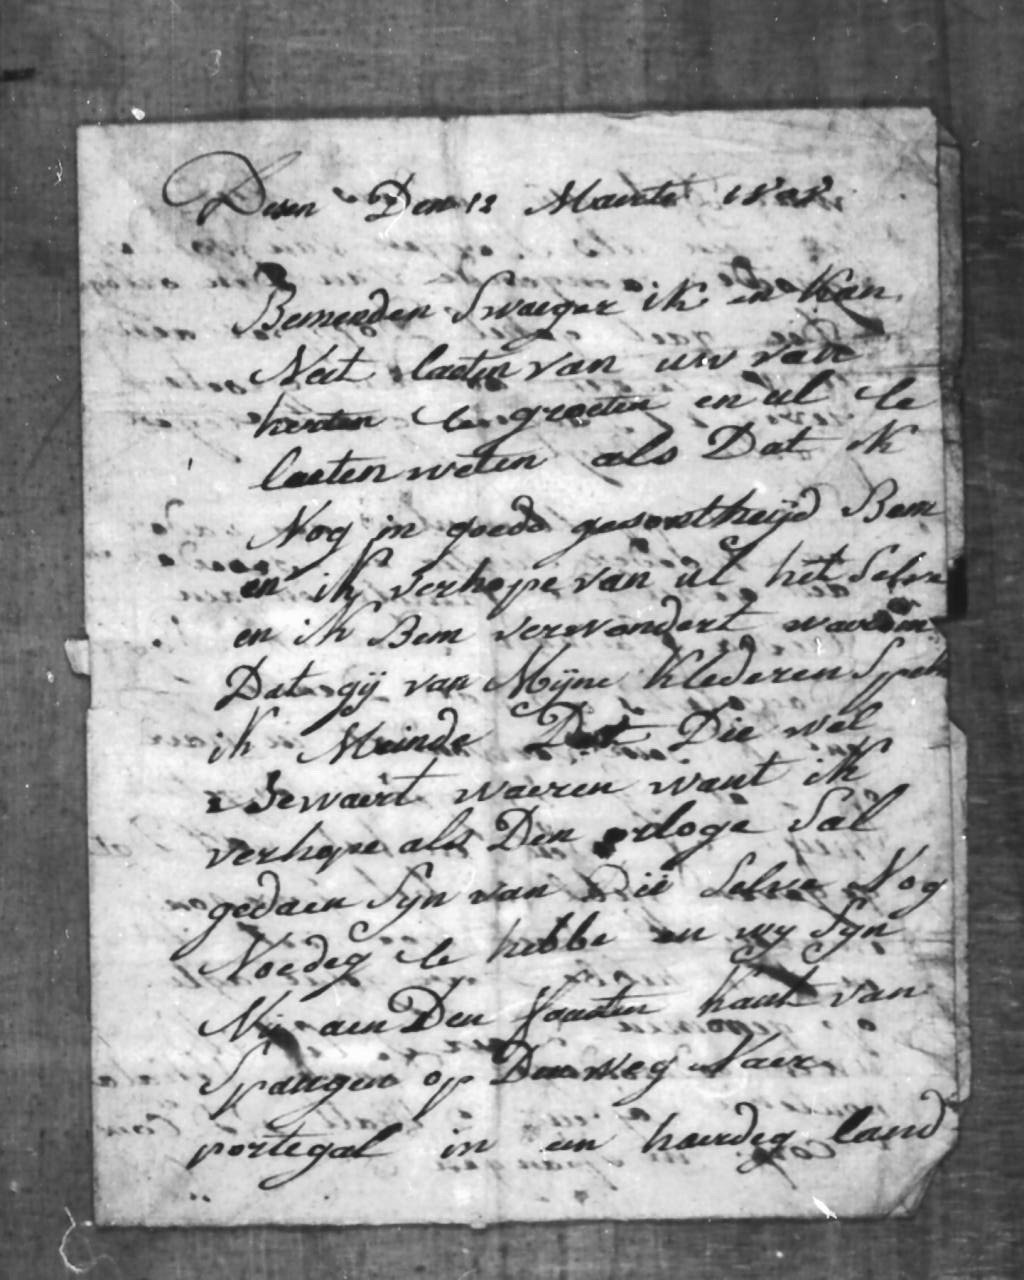 Desen Den 12 Maerte 1808
Bemenden Swaeger ik en kan
Neit laeten van uw van
herten te groeten en ul te
laeten weten als Dat ik
Nog in goede gesontheijd Bem
en ik verhope van ul het Selve
en ik Bem verwondert waerom
Dat gij van Mijne klederen Spek
ik Meinde Dat Die wel
Bewaert waeren want ik
verhope als Den orloge Sal
gedaen Sijn van Die Selve Nog
Noedeg te hebbe en wy Syn
Nij aen Den kant van
Spangen op Den weg Naer
portegal in een haerdeg land